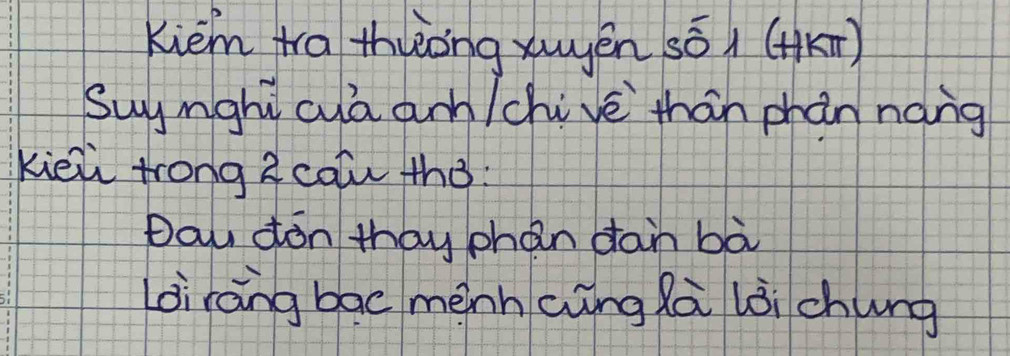 Kiểm tra thường xuyên số 1 (HKII)
Suy nghĩ của anh/chị về thân phận nàng
Kiều trong 2 câu thơ:
Đau đớn thay phận đàn bà
Lời rằng bạc mệnh cũng là lời chung